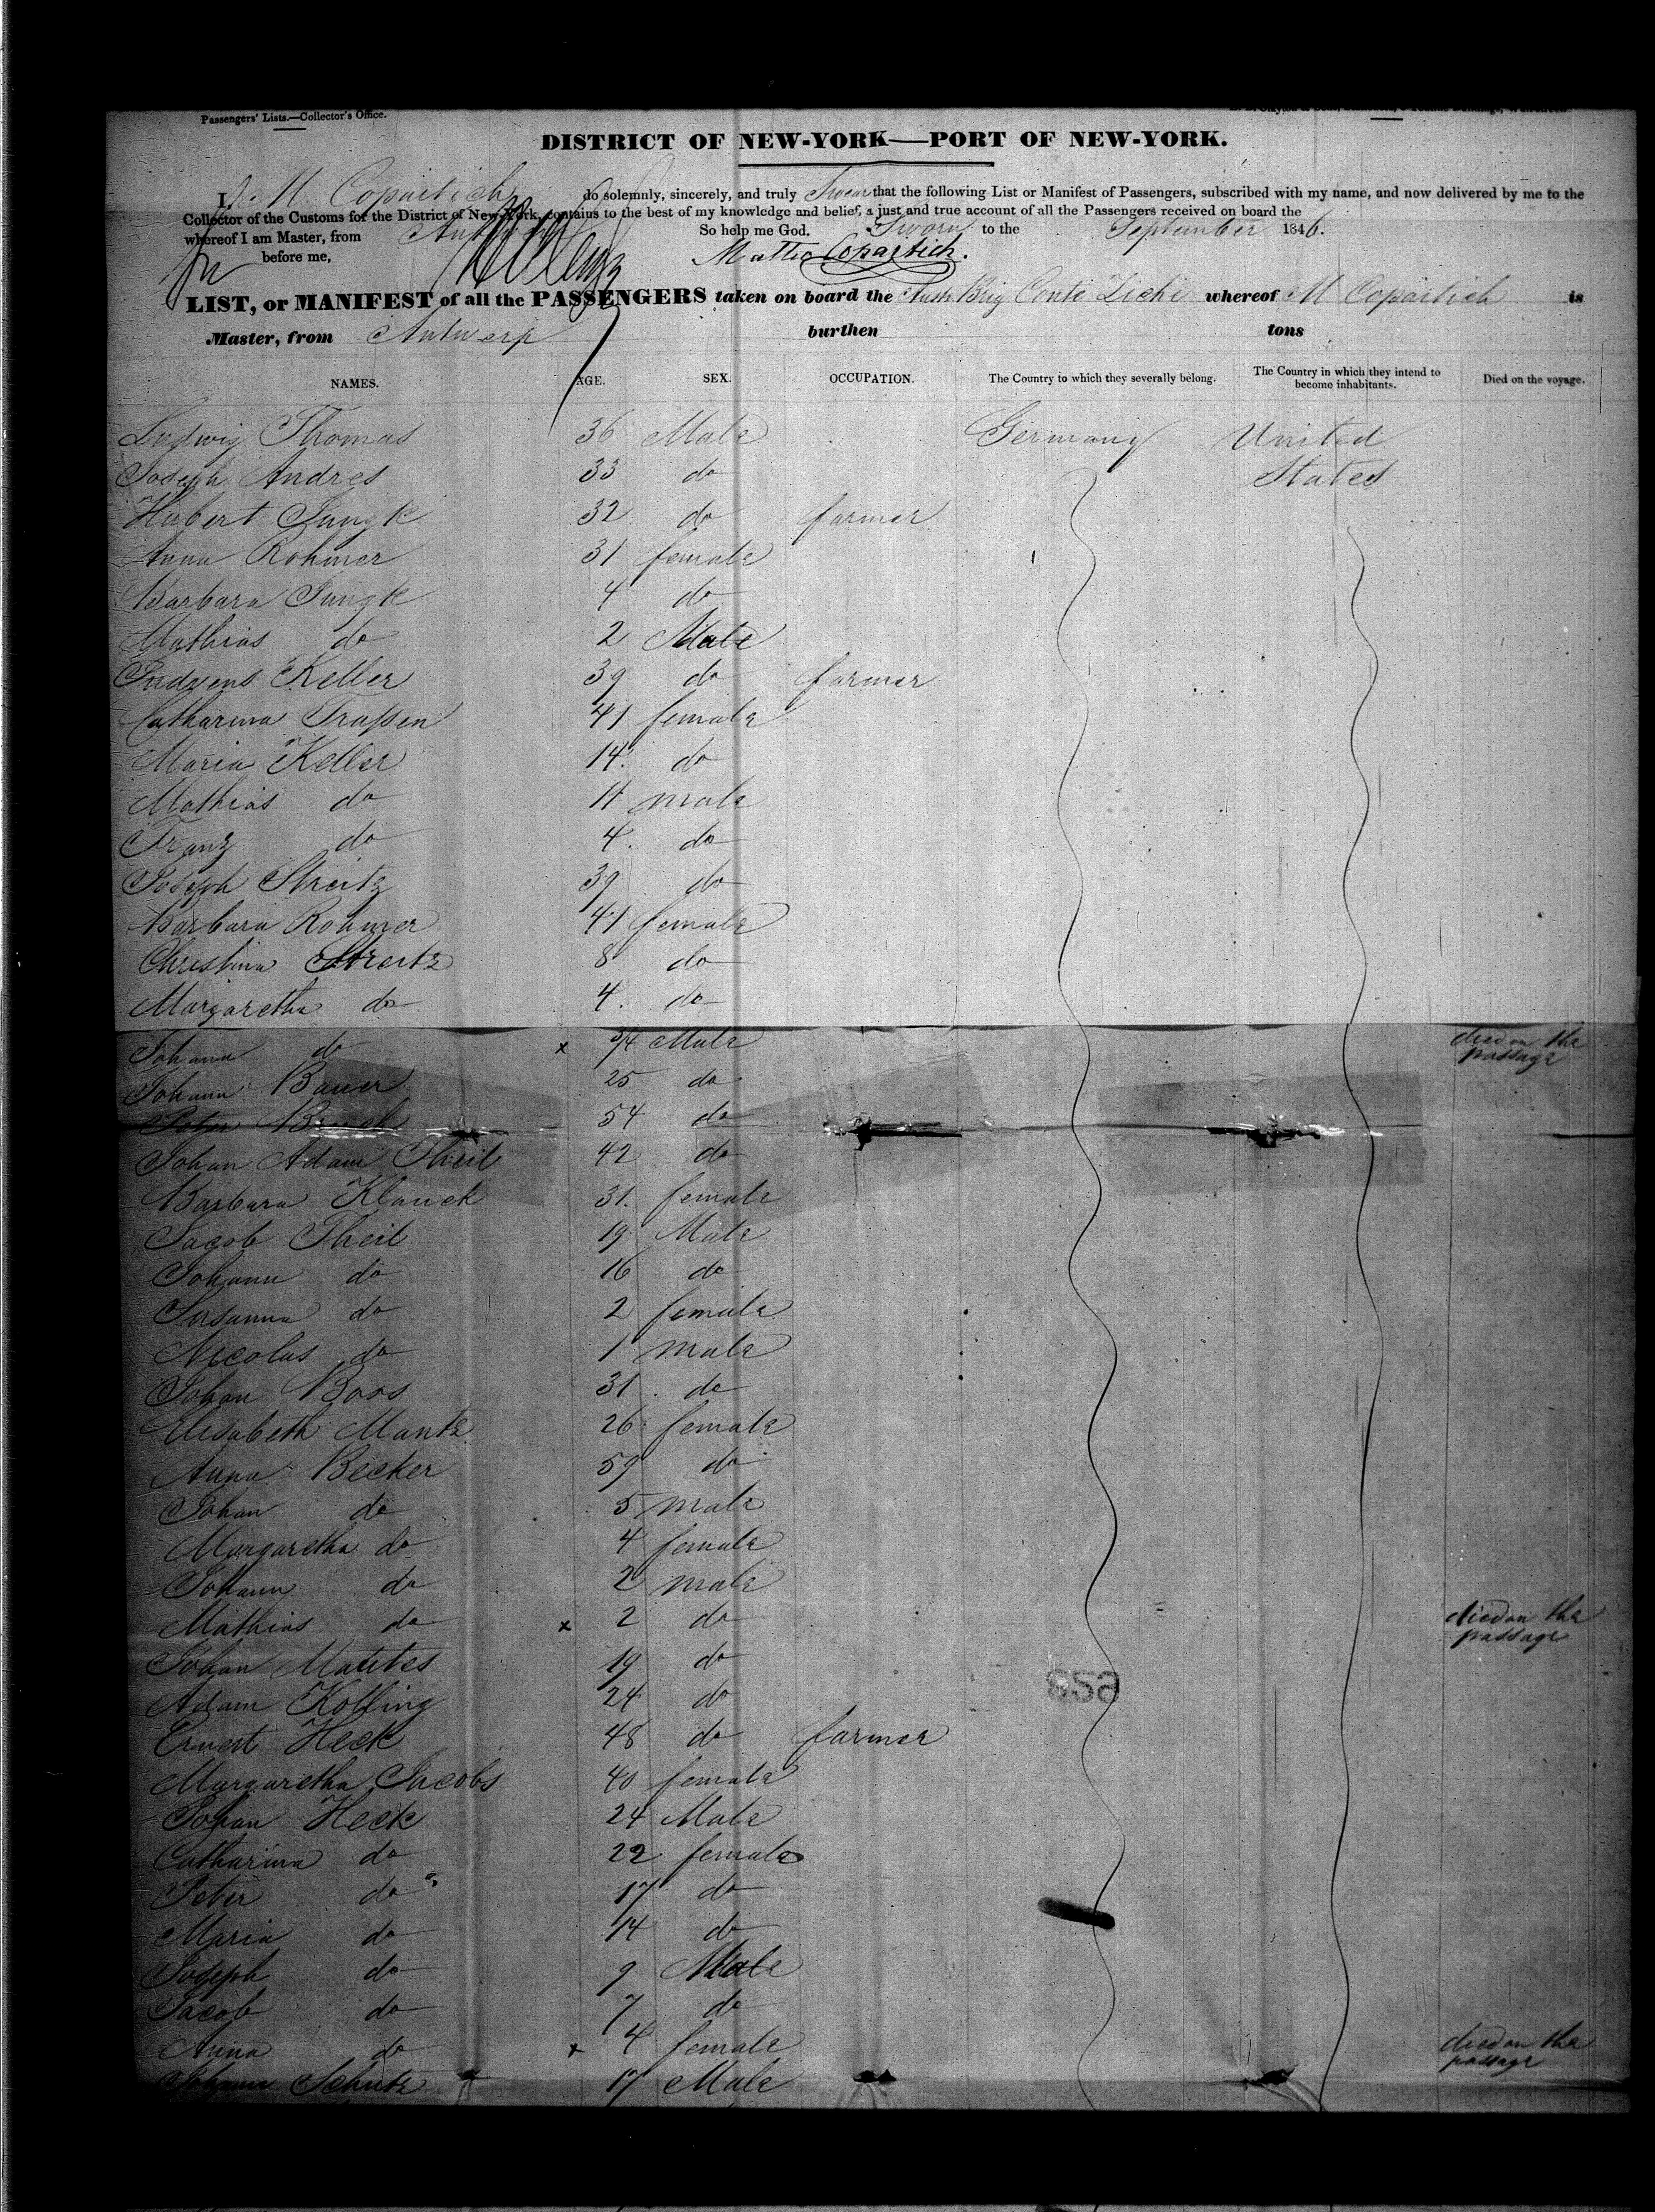 Passengers' Lists.—Collector's Office.
DISTRICT OF NEW-YORK—PORT OF NEW-YORK.
I, M. Copaitich do solemnly, sincerely, and truly Swear that the following List or Manifest of Passengers, subscribed with my name, and now delivered by me to the
Collector of the Customs for the District of New-York, contains to the best of my knowledge and belief, a just and true account of all the Passengers received on board the
whereof I am Master, from Antwerp So help me God. Sworn to the September 1846.
before me, Copaitich.
LIST, or MANIFEST of all the PASSENGERS taken on board the Austr Brig Conte Zichi whereof M Copaitich is
Master, from Antwerp burthen tons
NAMES. AGE. SEX. OCCUPATION. The Country to which they severally belong. The Country in which they intend to become inhabitants. Died on the voyage.
Ludwig Thomas 36 Male Germany United
Joseph Andres 33 do States
Hubert Jungk 32 do farmer
Anna Rohmer 31 female
Barbara Jungk 4 do
Mathias do 2 Male
Keller 39 do farmer
Catharina Traſsen 41 female
Maria Keller 14 do
Mathias do 11 male
Franz do 4 do
Joseph Streitz 39 do
Barbara Rohmer 41 female
Christina Streitz 8 do
Margaretha do 4 do
Johann do x 3/4 Male died on the passage
Johann Bauer 25 do
Peter 54 do
Johan Adam Theil 42 do
Barbara Klauck 31 female
Jacob Theil 19 Male
Johann do 16 do
Susanna do 2 female
Nicolas do 1 male
Johan Boos 31 do
Elisabeth Mantz 26 female
Anna Becker 59 do
Johan do 5 male
Margaretha do 4 female
Johann do 2 male
Mathias do x 2 do died on the passage
Johan Matites 19 do
Adam Kolling 24 do
Ernest Heck 48 do farmer
Margaretha Jacobs 40 female
Johan Heck 24 Male
Catharina do 22 female
Peter do 17 do
Maria do 14 do
Joseph do 9 Male
Jacob do 7 do
Anna do x 4 female died on the passage
Johann Schutz 17 Male